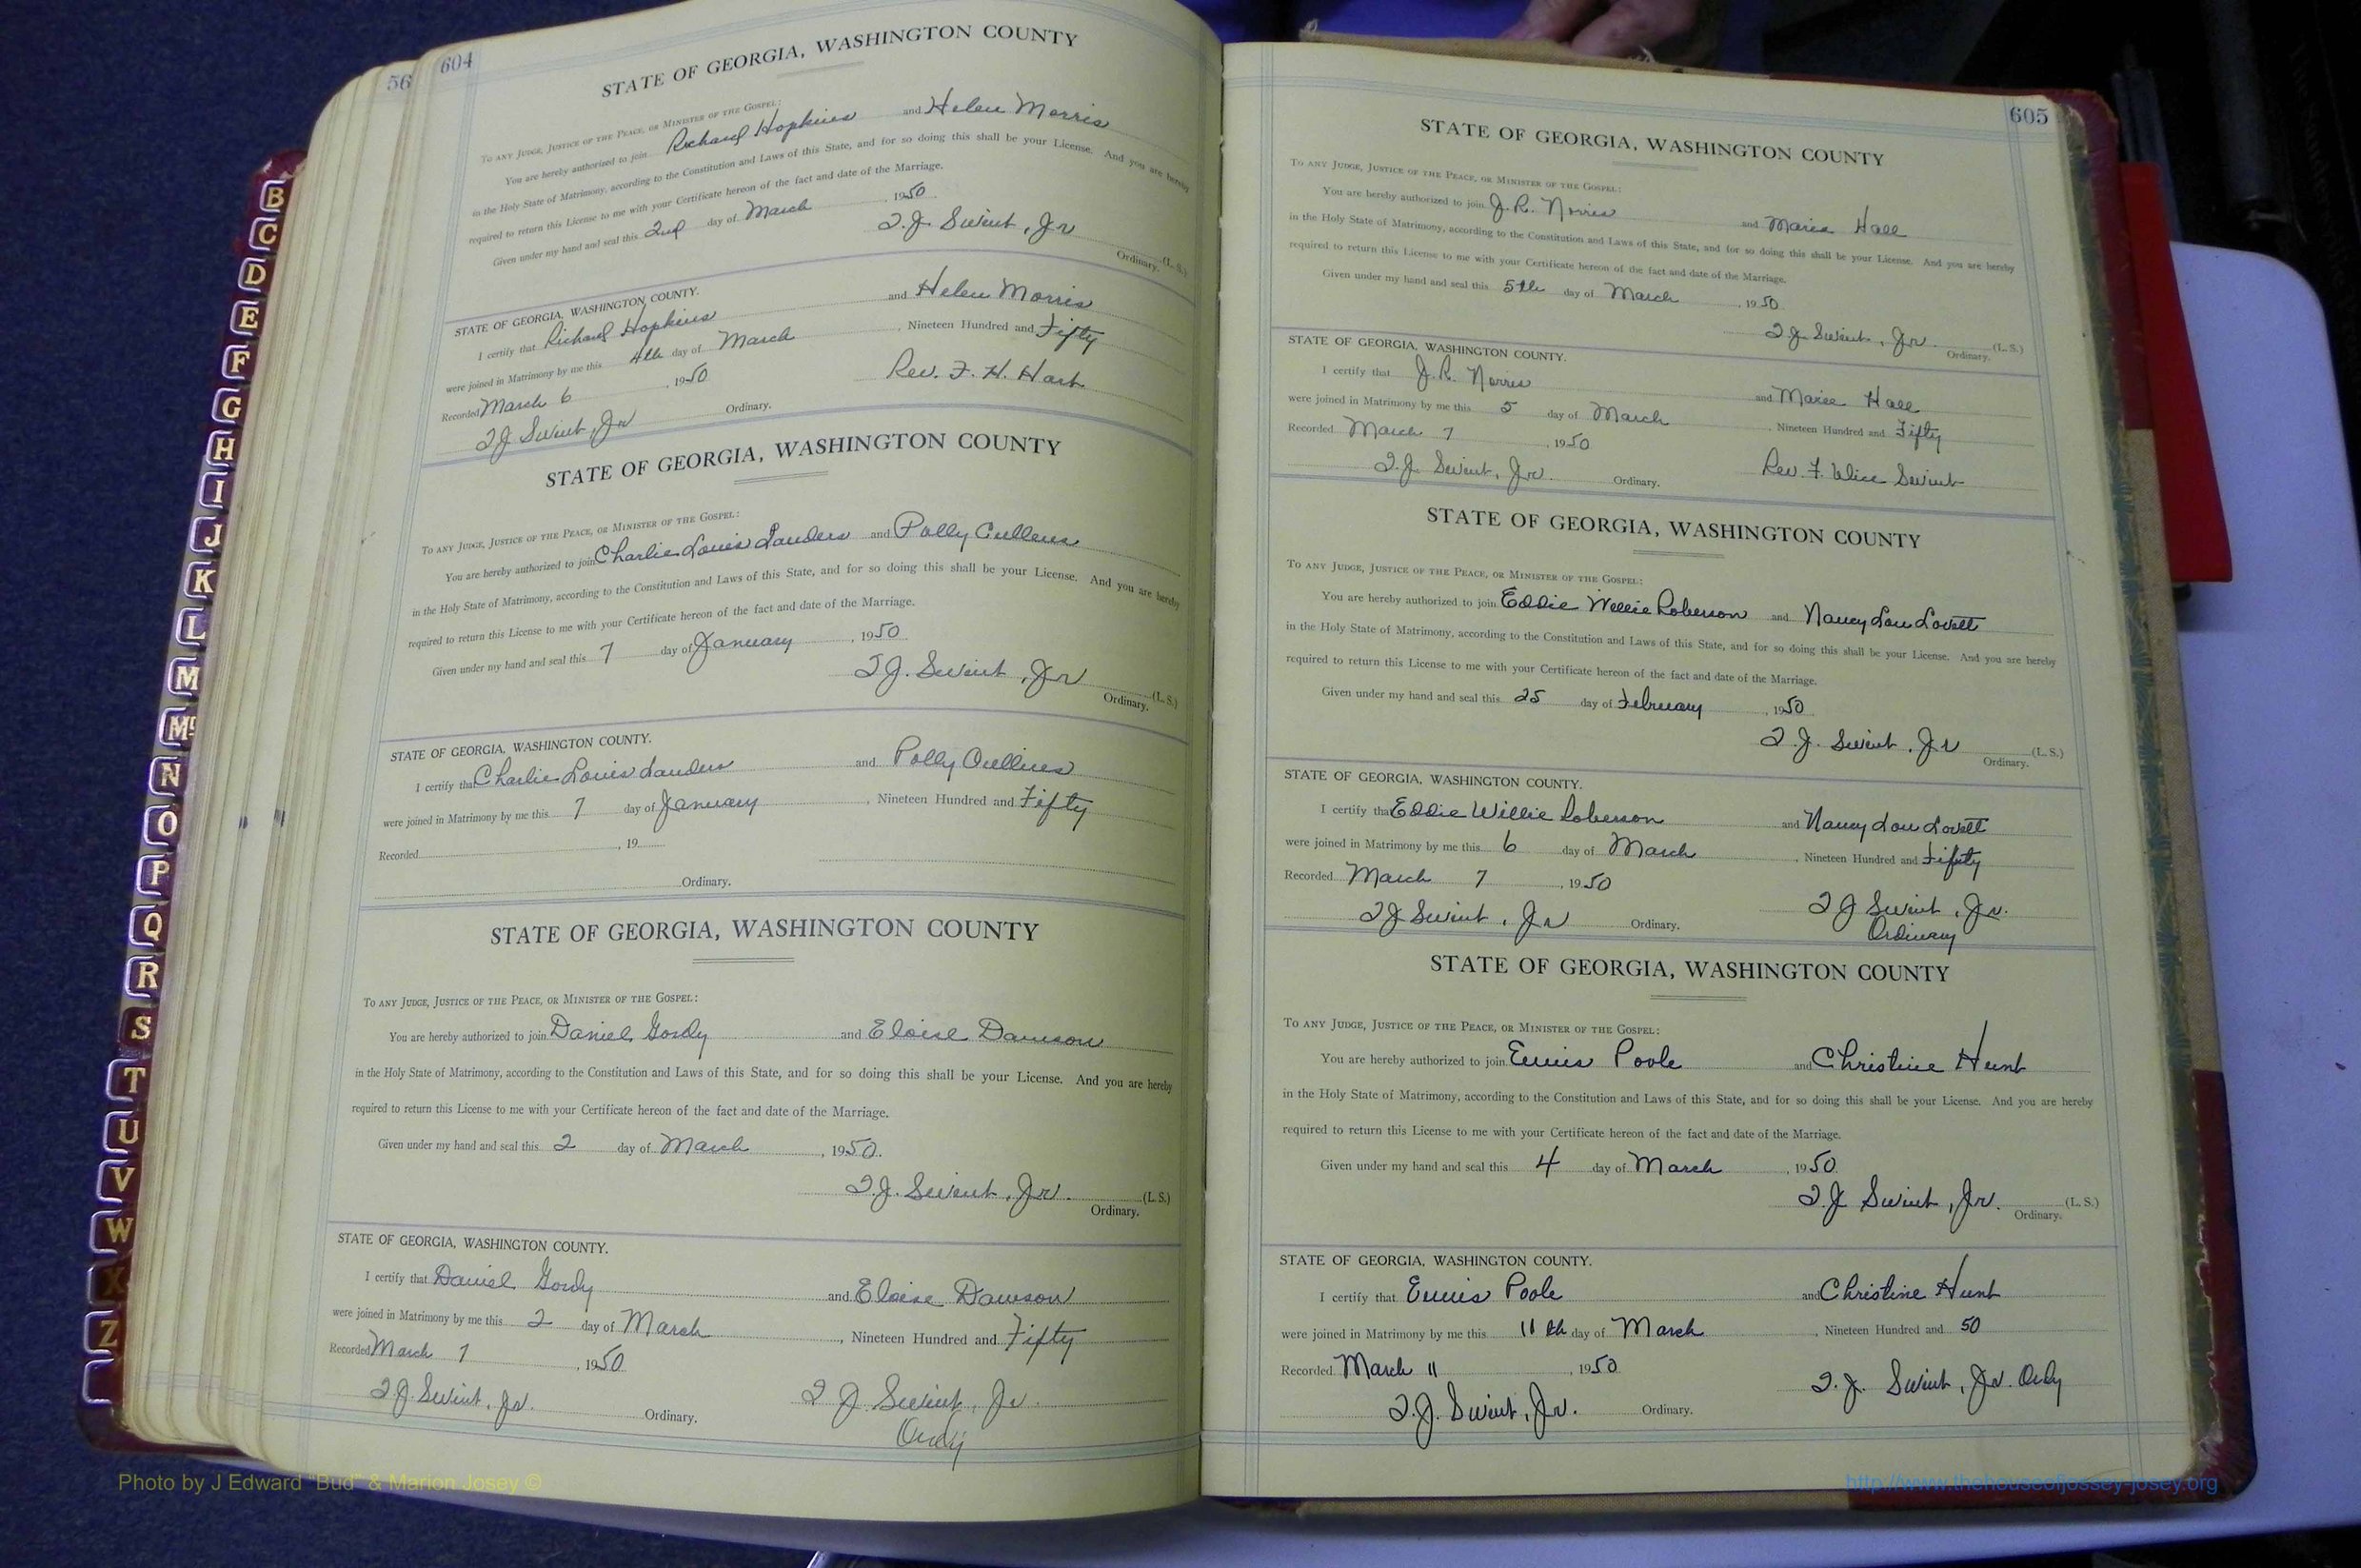 B
C
D
E
F
G
H
I
J
K
L
M
Mc
N
O
P
Q
R
S
T
U
V
W
X
Z
56
604
STATE OF GEORGIA, WASHINGTON COUNTY
To any Judge, Justice of the Peace, or Minister of the Gospel:
You are hereby authorized to join Richard Hopkins and Helen Morris
in the Holy State of Matrimony, according to the Constitution and Laws of this State, and for so doing this shall be your License. And you are hereby
required to return this License to me with your Certificate hereon of the fact and date of the Marriage.
Given under my hand and seal this 2nd day of March, 1950
T.J. Swint, Jr (L. S.)
Ordinary.
STATE OF GEORGIA, WASHINGTON COUNTY.
I certify that Richard Hopkins and Helen Morris
were joined in Matrimony by me this 4th day of March, Nineteen Hundred and Fifty
Recorded March 6, 1950 Rev. F. H. Hart
T J Swint, Jr Ordinary.
STATE OF GEORGIA, WASHINGTON COUNTY
To any Judge, Justice of the Peace, or Minister of the Gospel:
You are hereby authorized to join Charlie Louis Sanders and Polly Cullens
in the Holy State of Matrimony, according to the Constitution and Laws of this State, and for so doing this shall be your License. And you are hereby
required to return this License to me with your Certificate hereon of the fact and date of the Marriage.
Given under my hand and seal this 7 day of January, 1950
T J. Swint, Jr (L. S.)
Ordinary.
STATE OF GEORGIA, WASHINGTON COUNTY.
I certify that Charlie Louis Sanders and Polly Cullens
were joined in Matrimony by me this 7 day of January, Nineteen Hundred and Fifty
Recorded , 19
Ordinary.
STATE OF GEORGIA, WASHINGTON COUNTY
To any Judge, Justice of the Peace, or Minister of the Gospel:
You are hereby authorized to join Daniel Gordy and Eloise Dawson
in the Holy State of Matrimony, according to the Constitution and Laws of this State, and for so doing this shall be your License. And you are hereby
required to return this License to me with your Certificate hereon of the fact and date of the Marriage.
Given under my hand and seal this 2 day of March, 1950.
T.J. Swint, Jr. (L. S.)
Ordinary.
STATE OF GEORGIA, WASHINGTON COUNTY.
I certify that Daniel Gordy and Eloise Dawson
were joined in Matrimony by me this 2 day of March, Nineteen Hundred and Fifty
Recorded March 7, 1950
T J. Swint, Jr. Ordinary. T J Swint, Jr.
Ordy
605
STATE OF GEORGIA, WASHINGTON COUNTY
To any Judge, Justice of the Peace, or Minister of the Gospel:
You are hereby authorized to join J. R. Norris and Marie Hall
in the Holy State of Matrimony, according to the Constitution and Laws of this State, and for so doing this shall be your License. And you are hereby
required to return this License to me with your Certificate hereon of the fact and date of the Marriage.
Given under my hand and seal this 5th day of March, 1950
T J Swint, Jr. (L. S.)
Ordinary.
STATE OF GEORGIA, WASHINGTON COUNTY.
I certify that J. R. Norris and Marie Hall
were joined in Matrimony by me this 5 day of March, Nineteen Hundred and Fifty
Recorded March 7, 1950
T.J. Swint, Jr. Ordinary. Rev. F. Swint
STATE OF GEORGIA, WASHINGTON COUNTY
To any Judge, Justice of the Peace, or Minister of the Gospel:
You are hereby authorized to join Eddie Willie Roberson and Nancy Lou Lovett
in the Holy State of Matrimony, according to the Constitution and Laws of this State, and for so doing this shall be your License. And you are hereby
required to return this License to me with your Certificate hereon of the fact and date of the Marriage.
Given under my hand and seal this 25 day of February, 1950
T.J. Swint, Jr (L. S.)
Ordinary.
STATE OF GEORGIA, WASHINGTON COUNTY.
I certify that Eddie Willie Roberson and Nancy Lou Lovett
were joined in Matrimony by me this 6 day of March, Nineteen Hundred and Fifty
Recorded March 7, 1950
T J Swint, Jr Ordinary. T J Swint, Jr.
Ordinary
STATE OF GEORGIA, WASHINGTON COUNTY
To any Judge, Justice of the Peace, or Minister of the Gospel:
You are hereby authorized to join Ennis Poole and Christine Hunt
in the Holy State of Matrimony, according to the Constitution and Laws of this State, and for so doing this shall be your License. And you are hereby
required to return this License to me with your Certificate hereon of the fact and date of the Marriage.
Given under my hand and seal this 4 day of March, 1950
T.J Swint, Jr. (L. S.)
Ordinary.
STATE OF GEORGIA, WASHINGTON COUNTY.
I certify that Ennis Poole and Christine Hunt
were joined in Matrimony by me this 11th day of March, Nineteen Hundred and 50
Recorded March 11, 1950 T. J. Swint, Jr. Ordy
T.J. Swint, Jr. Ordinary.
Photo by J Edward "Bud" & Marion Josey ©
http://www.thehouseofjossey-josey.org